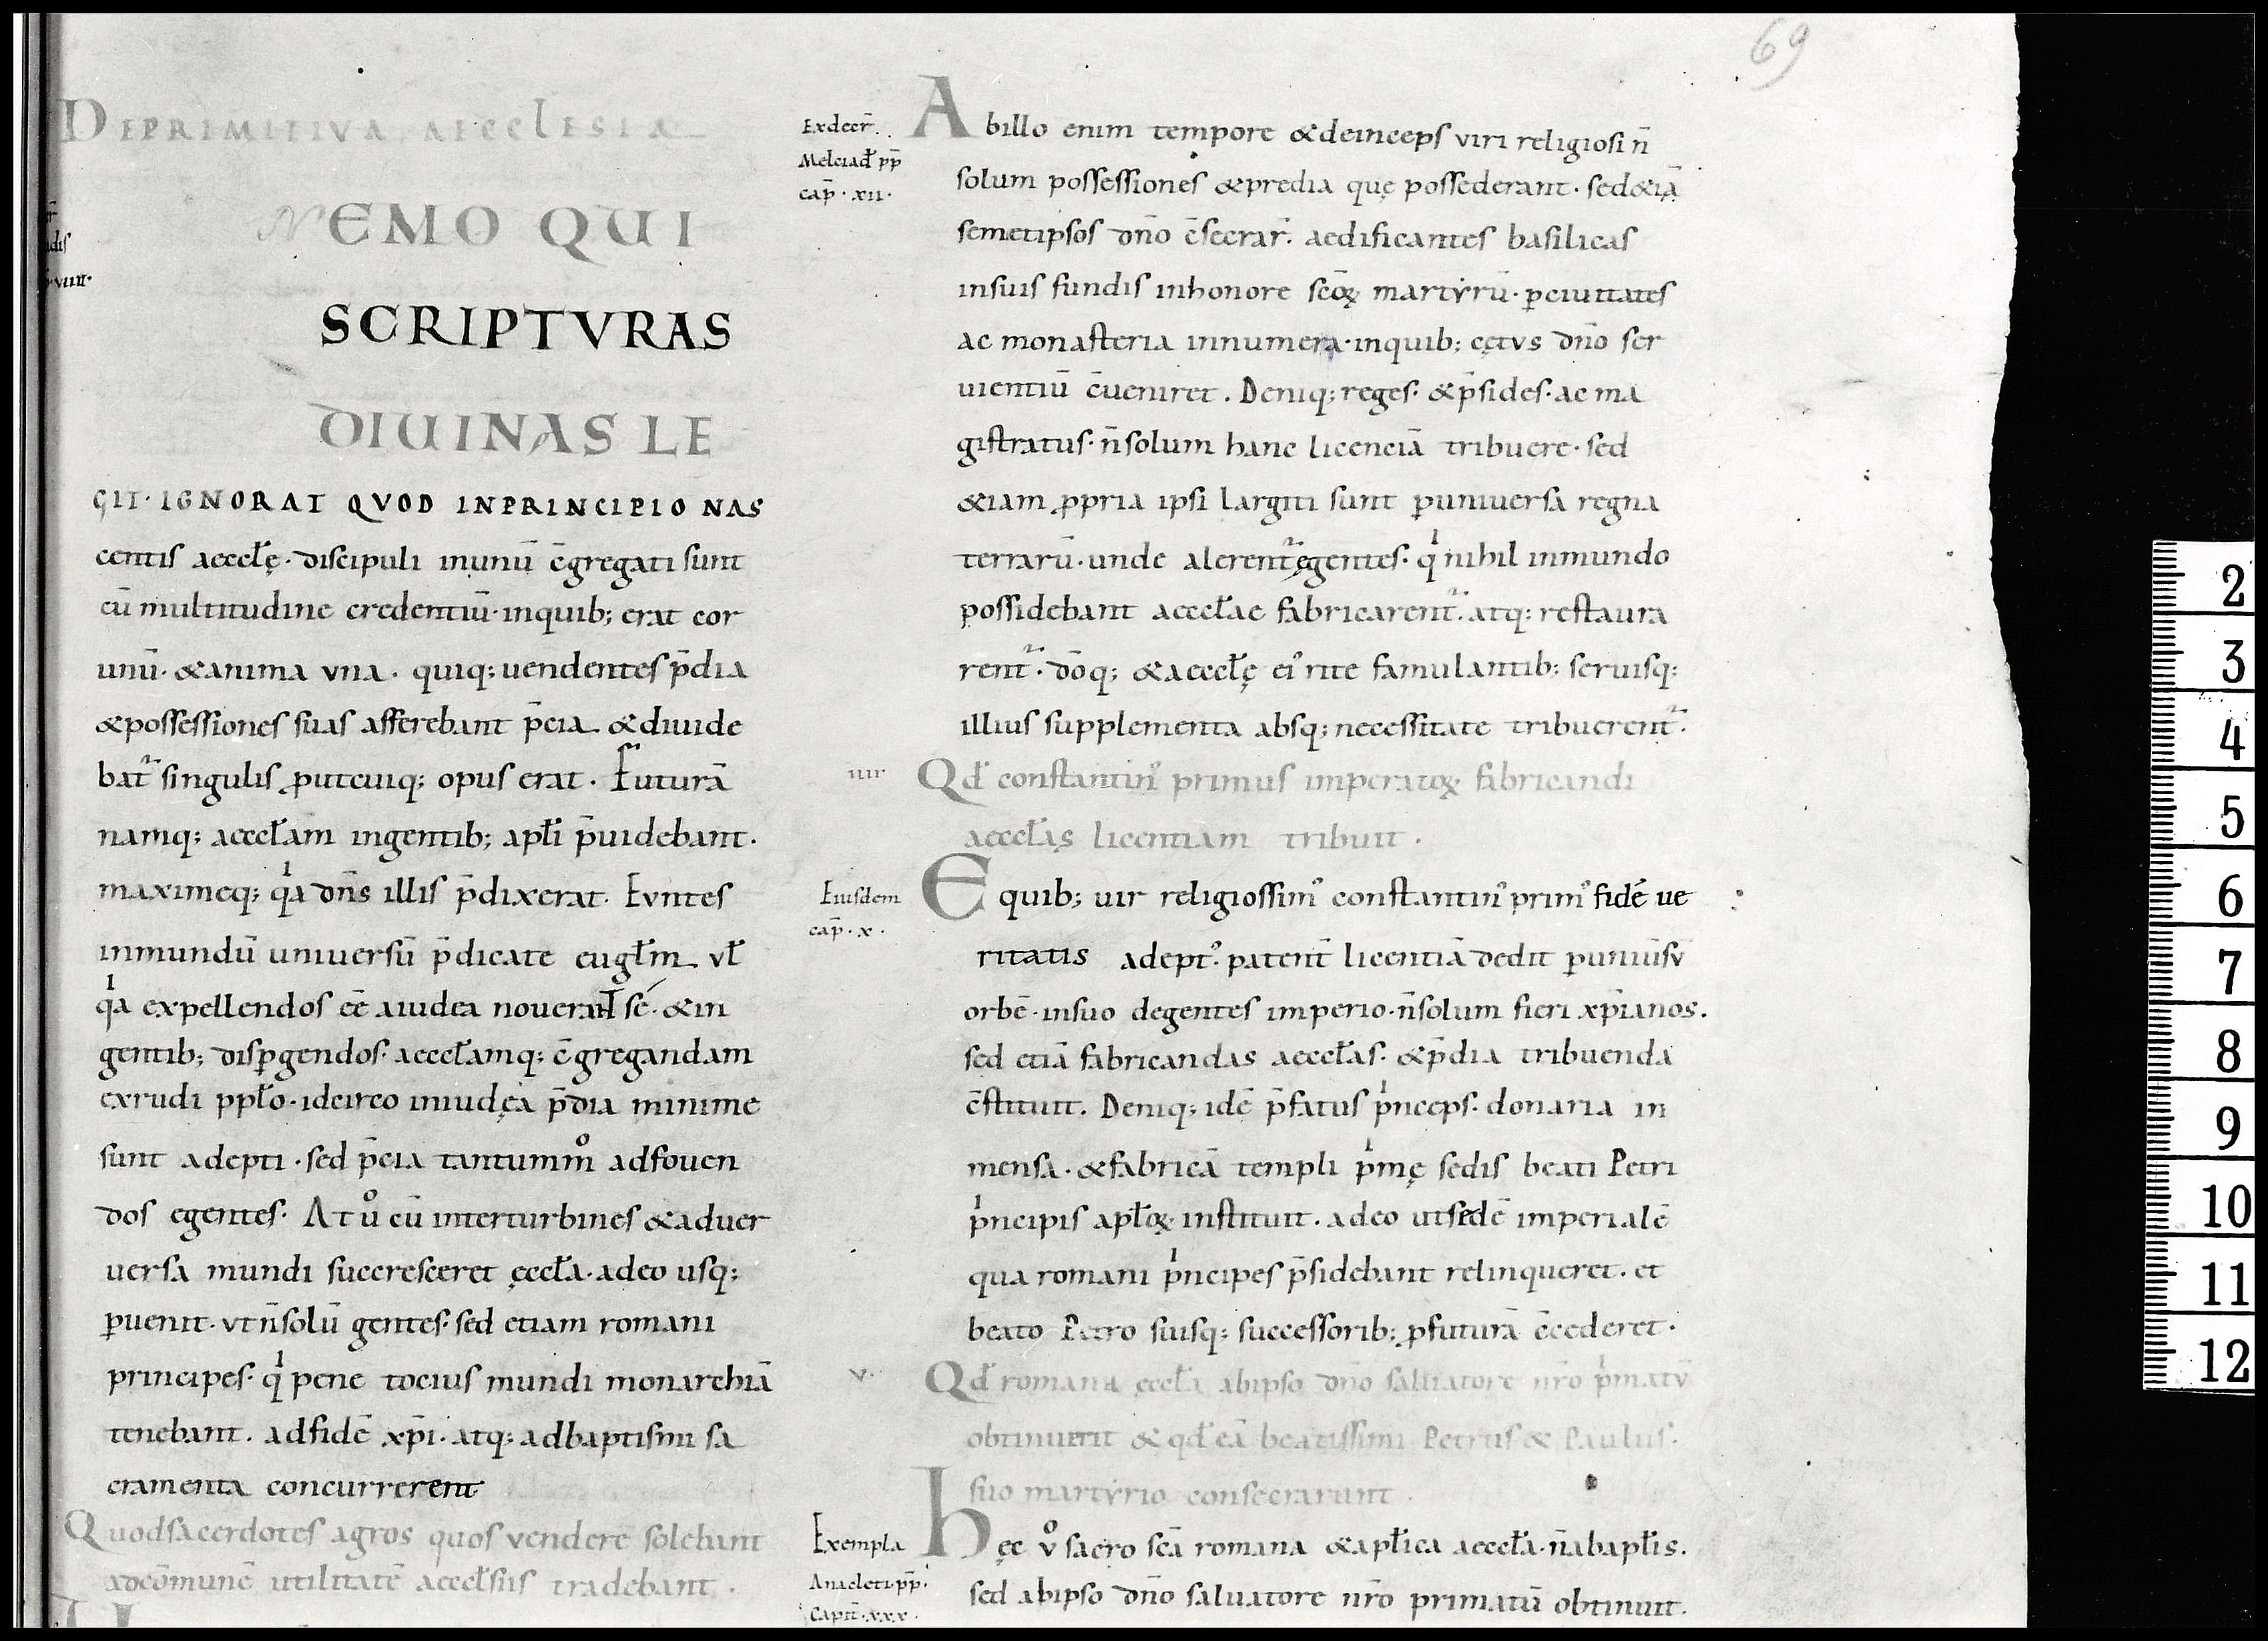 DE PRIMITIVA AECCLESIA
NEMO QUI
SCRIPTVRAS
DIUINAS LE
GIT· IGNORAT QVOD INPRINCIPIO NAS
centis aeccłę· discipuli inunū c̄gregati sunt
cū multitudine credentiū· inquib; erat cor
unū· &anima vna· quiq; uendentes p̄dia
&possessiones suas afferebant p̄cia &diuide
bat̃ singulis ꝓutcuiq; opus erat. Futurā
namq; aeccłam ingentib; apłi p̄uidebant.
maximeq; qͥa dn̄s illis p̄dixerat. Evntes
inmundū uniuersū p̄dicate eugłm vł
qͥa expellendos eē aiudea nouerant se· &in
gentib; disꝑgendos· aeccłamq; c̄gregandam
exrudi ppło· idcirco iniudęa p̄dia minime
sunt adepti· sed p̄cia tantummͦ adfouen
dos egentes· At uͦ cū interturbines &aduer
uersa mundi succresceret ęccła· adeo usq;
ꝑuenit· vt n̄solū gentes· sed etiam romani
principes· qͥ pene tocius mundi monarchiā
tenebant. adfidē xp̄i· atq; adbaptismi sa
cramenta concurrerent
Quodsacerdotes agros quos vendere solebant
adcōmunē utilitatē aeccłsiis tradebant.
69
Exdecr̄.
Melciad̄ pp̄
cap̄· xii·
Abillo enim tempore &deinceps viri religiosi n̄
solum possessiones &predia quę possederant· sed&iā
semetipsos dn̄o c̄secrar̄. aedificantes basilicas
insuis fundis inhonore sc̄oꝝ martẏrū· ꝑciuitates
ac monasteria innumera· inquib; cętvs dn̄o ser
uientiū c̄ueniret. Deniq; reges· &p̄sides· ac ma
gistratus· n̄solum hanc licenciā tribuere· sed
&iam ꝓpria ipsi largiti sunt ꝑuniuersa regna
terrarū· unde alerent̃ egentes· qͥ nihil inmundo
possidebant aeccłae fabricarent̃· atq; restaura
rent̃· dōq; &aeccłę ei᾽ rite famulantib; seruisq;
illius supplementa absq; necessitate tribuerent̃·
iiii
Qd̄ constantin᾽ primus imperatoꝝ fabricandi
aeccłas licentiam tribuit.
Eiusdem
cap̄· x·
Equib; uir religiossim᾽ constantin᾽ prim᾽ fidē ue
ritatis adept᾽· patent̄ licentiā dedit ꝑuniūsv
orbē· insuo degentes imperio· n̄solum fieri xp̄ianos.
sed etiā fabricandas aeccłas· &p̄dia tribuenda
c̄stituit. Deniq; idē p̄fatus pͥnceps· donaria in
mensa· &fabricā templi pͥmę sedis beati Petri
pͥncipis apłoꝝ· instituit. adeo utsedē imperialē
qua romani pͥncipes p̄sidebant relinqueret. et
beato Petro suisq; successorib; ꝓfuturā c̄cederet·
v·
Qd̄ romana ęccła abipso dn̄o saluatore nr̄o pͥmatū
obtinuerit & qd̄ eā beatissimi Petrus & Paulus·
suo martẏrio consecrarunt.
Exempla
Anacleti· pp̄·
Capit̄· xxx·
hęc vͦ sacro sc̄a romana &apłica aeccła· n̄abapłis.
sed abipso dn̄o saluatore nr̄o primatū obtinuit.